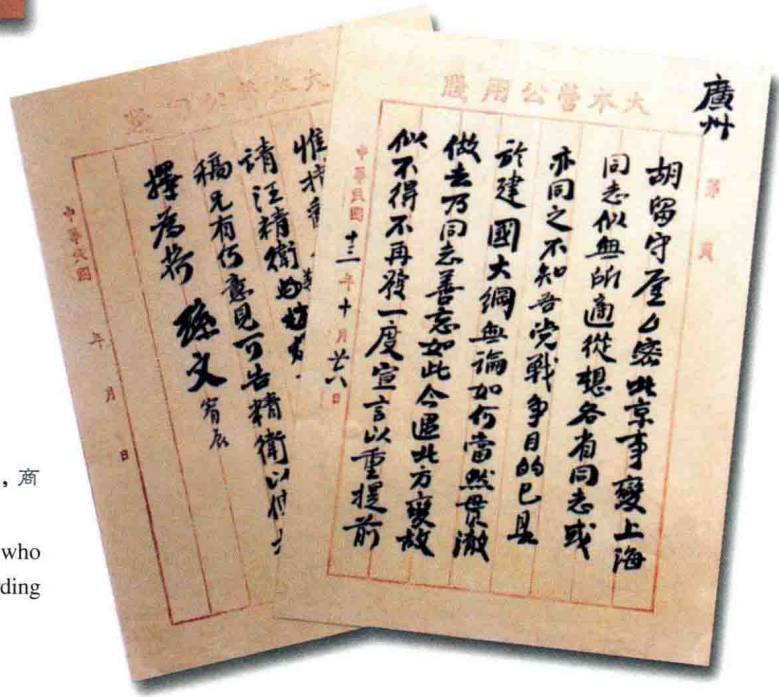 大本營公用牋
廣州
第 頁
胡留守展公密北京事變上海
同志似無所適從想各省同志或
亦同之不知吾党戰爭目的已具
於建國大綱無論如何當然貫澈
做去乃同志善忘如此今遇北方變故
似不得不再發一度宣言以重提前
中華民國十三年十月廿八日
惟
請汪精衛
稿兄有何意見可告精衛以供
擇為荷 孫文 宥辰
中華民國 年 月 日
,商
who
rding